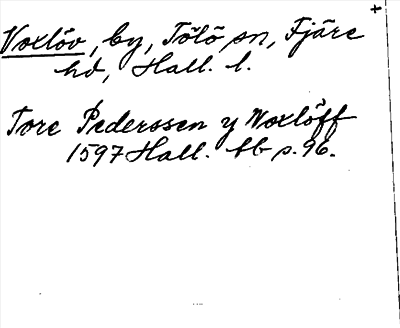 Voxlöv, by, Tölö sn, Fjäre
hd, Hall. l.
Tore Pederssen y Woxlöff
1597 Hall. tb s. 96.